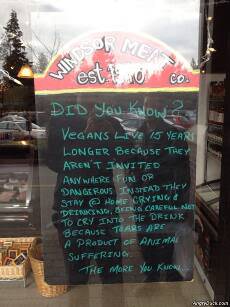 WINDSOR MEAT
CO.
est.
DID YOU KNOW?
VEGANS LIVE 15 YEARS
LONGER BECAUSE THEY
AREN'T INVITED
ANYWHERE FUN OR
DANGEROUS INSTEAD THEY
STAY @ HOME CRYING &
DRINKING, BEING CAREFUL NOT
TO CRY INTO THE DRINK
BECAUSE TEARS ARE
A PRODUCT OF ANIMAL
SUFFERING.
THE MORE YOU KNOW...
AngryDuck.com